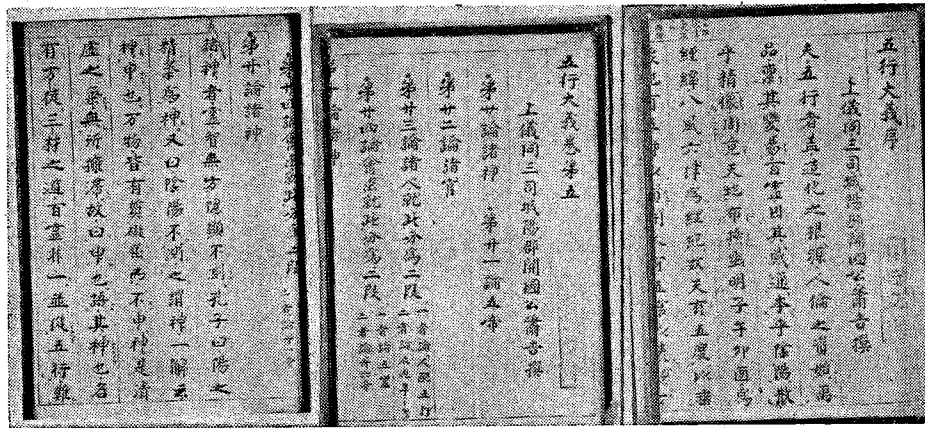 五行大義序
上儀同三司城陽郡開國公蕭吉撰
夫五行者蓋造化之根源人倫之資始萬
品稟其變易百靈因其感通本乎陰陽散
乎精像周竟天地布極幽明子午卯酉為
經緯八風六律為綱紀故天有五度以垂
五行大義卷第五
上儀同三司城陽郡開國公蕭吉撰
第廿論諸神 第廿一論五帝
第廿二論諸官
第廿三論諸人就此分為二段 一者論人配五行
二者論人
第廿四論禽蟲就此分為二段 一者論五靈
二者論卅六禽
第廿論諸神
神者靈智無方隱顯不測孔子曰陽之
精氣為神又曰陰陽不測之謂神一解云
神申也万物皆有質礙屈而不申神是清
虛之氣無所擁滯故曰申也語其神也名
有万徒三才之道百靈非一並從五行難